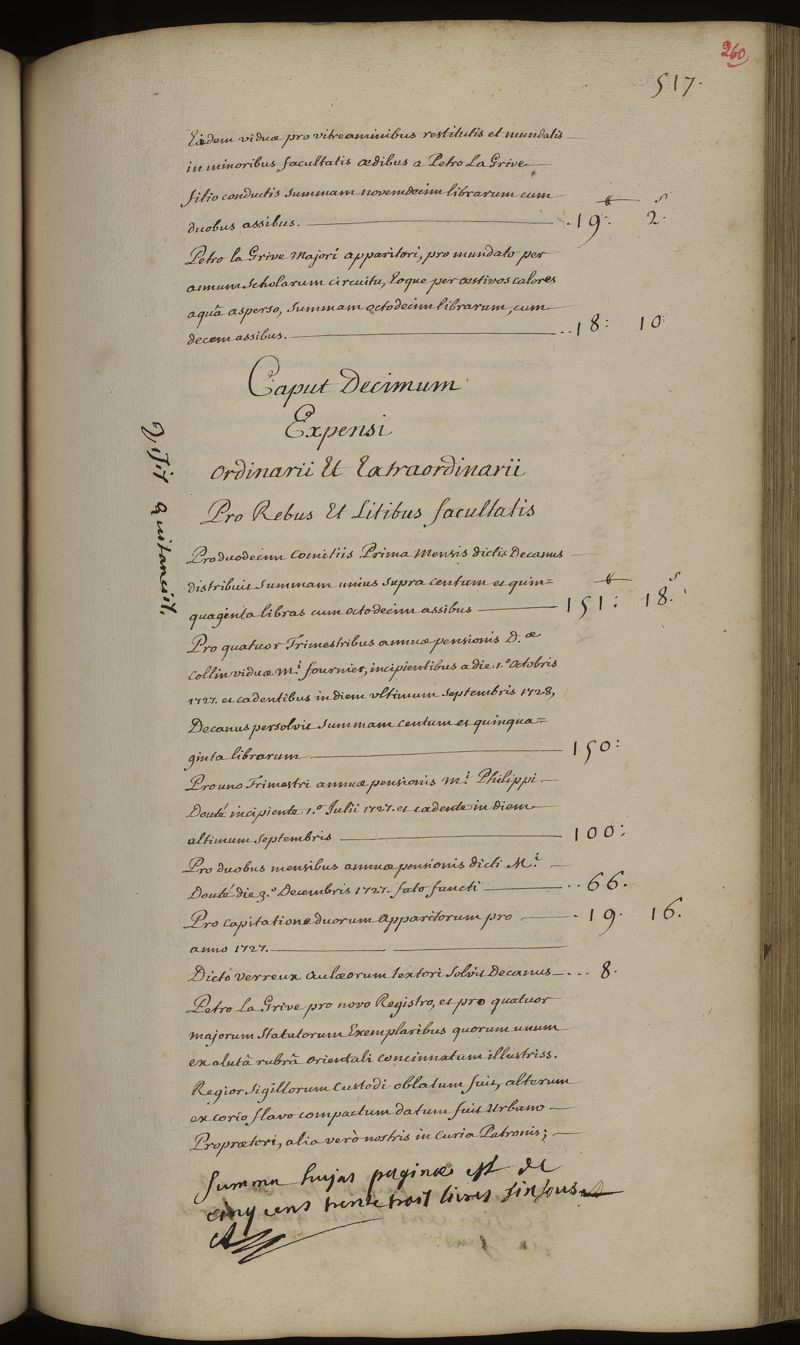 260
517.
Eidem viduæ pro vitreaminibus restitutis et mundatis
in minoribus facultatis ædibus a Petro La Grive
filio conductis summam novemdecim librarum cum
duobus assibus. 19: 2.
Petro la Grive Majori apparitori, pro mundato per
annum Scholarum circuitu, Eoque per æstivos calores
aquâ asperso, summam octodecim librarum, cum
decem assibus. 18: 10
Caput Decimum
Expensi
Ordinarii Et Extraordinarii
Pro Rebus Et Litibus facultatis
Visit Quitanciis.
Pro duodecim Comitiis Prima Mensis dictis Decanus
distribuit summam unius supra centum et quin=
quaginta libras cum octodecim assibus 151: 18.
Pro quatuor Trimestribus annuæ pensionis D.æ
Collin viduæ M.i fournier, incipientibus a die 1.º Octobris
1727. et cadentibus in diem ultimum septembris 1728,
Decanus persolvit summam centum et quinqua=
ginta librarum 150:
Pro uno Trimestri annuæ pensionis M.i Philippi
Douté incipiente 1.º Julii 1727. et cadente in diem
ultimum septembris 100:
Pro duobus mensibus annuæ pensionis dicti M.i
Douté die 3.º Decembris 1727. fato functi 66.
Pro capitatione duorum Apparitorum pro 19. 16.
anno 1727.
Dicto Verreux aulæorum textori solvit Decanus 8.
Petro La Grive pro novo Registro, et pro quatuor
majorum statutorum Exemplaribus quorum unum
ex alutâ rubrâ orientali concinnatum illustriss.
Regior Sigillorum Custodi oblatum fuit, alterum
ex corio flavo compactum datum fuit Urbano
Proprætori, alia verò nostris in Curia Patronis;
Summa hujus paginæ est de
cinq cens trente trois livres six sous